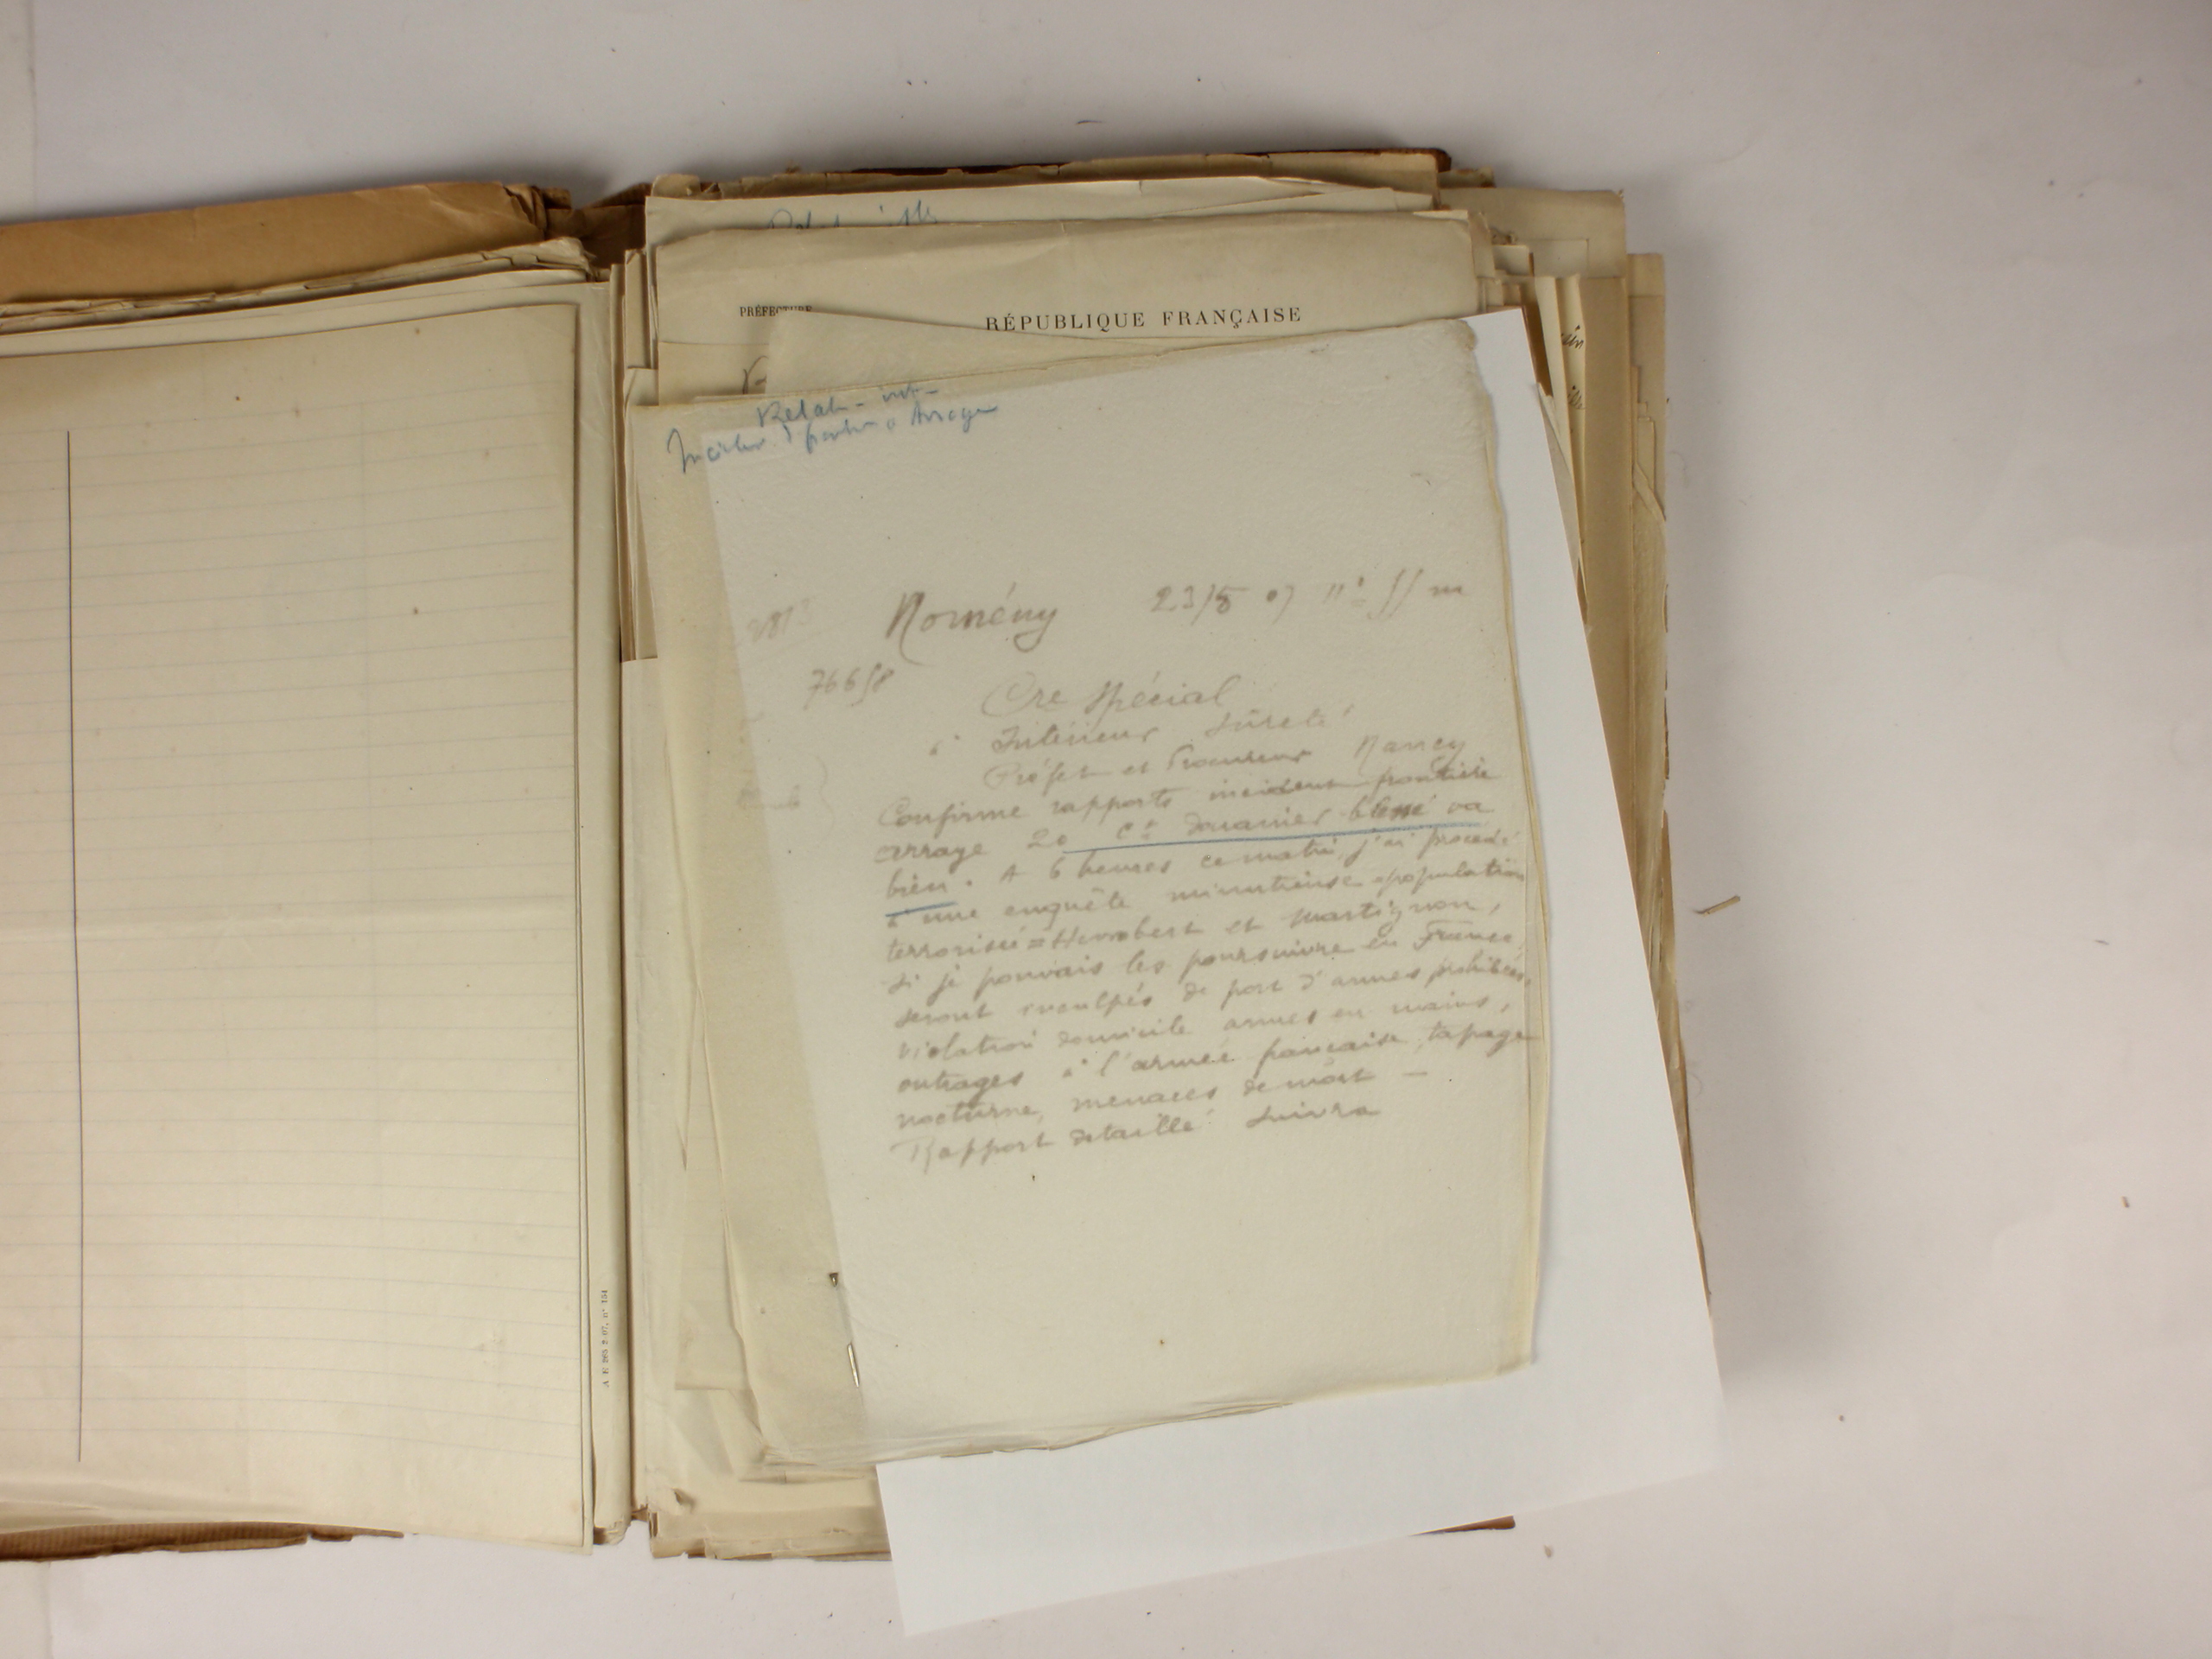 PRÉFECTURE
RÉPUBLIQUE FRANÇAISE
Relat- int-
Incident frontre Arraye
Nomény 23/5 07 11h 55 m
76658
Cre Spécial
à Intérieur Sûreté
Préfet et Procureur Nancy
Confirme rapports incident frontière
arraye 20 ct douanier blessé va
bien. A 6 heures ce matin, j'ai procédé
à une enquête minutieuse population
terrorisée = Humbert et Martignon,
si je pouvais les poursuivre en France,
seront inculpés de port d'armes prohibées,
violation domicile armes en mains,
outrages à l'armée française, tapage
nocturne, menaces de mort —
Rapport détaillé suivra